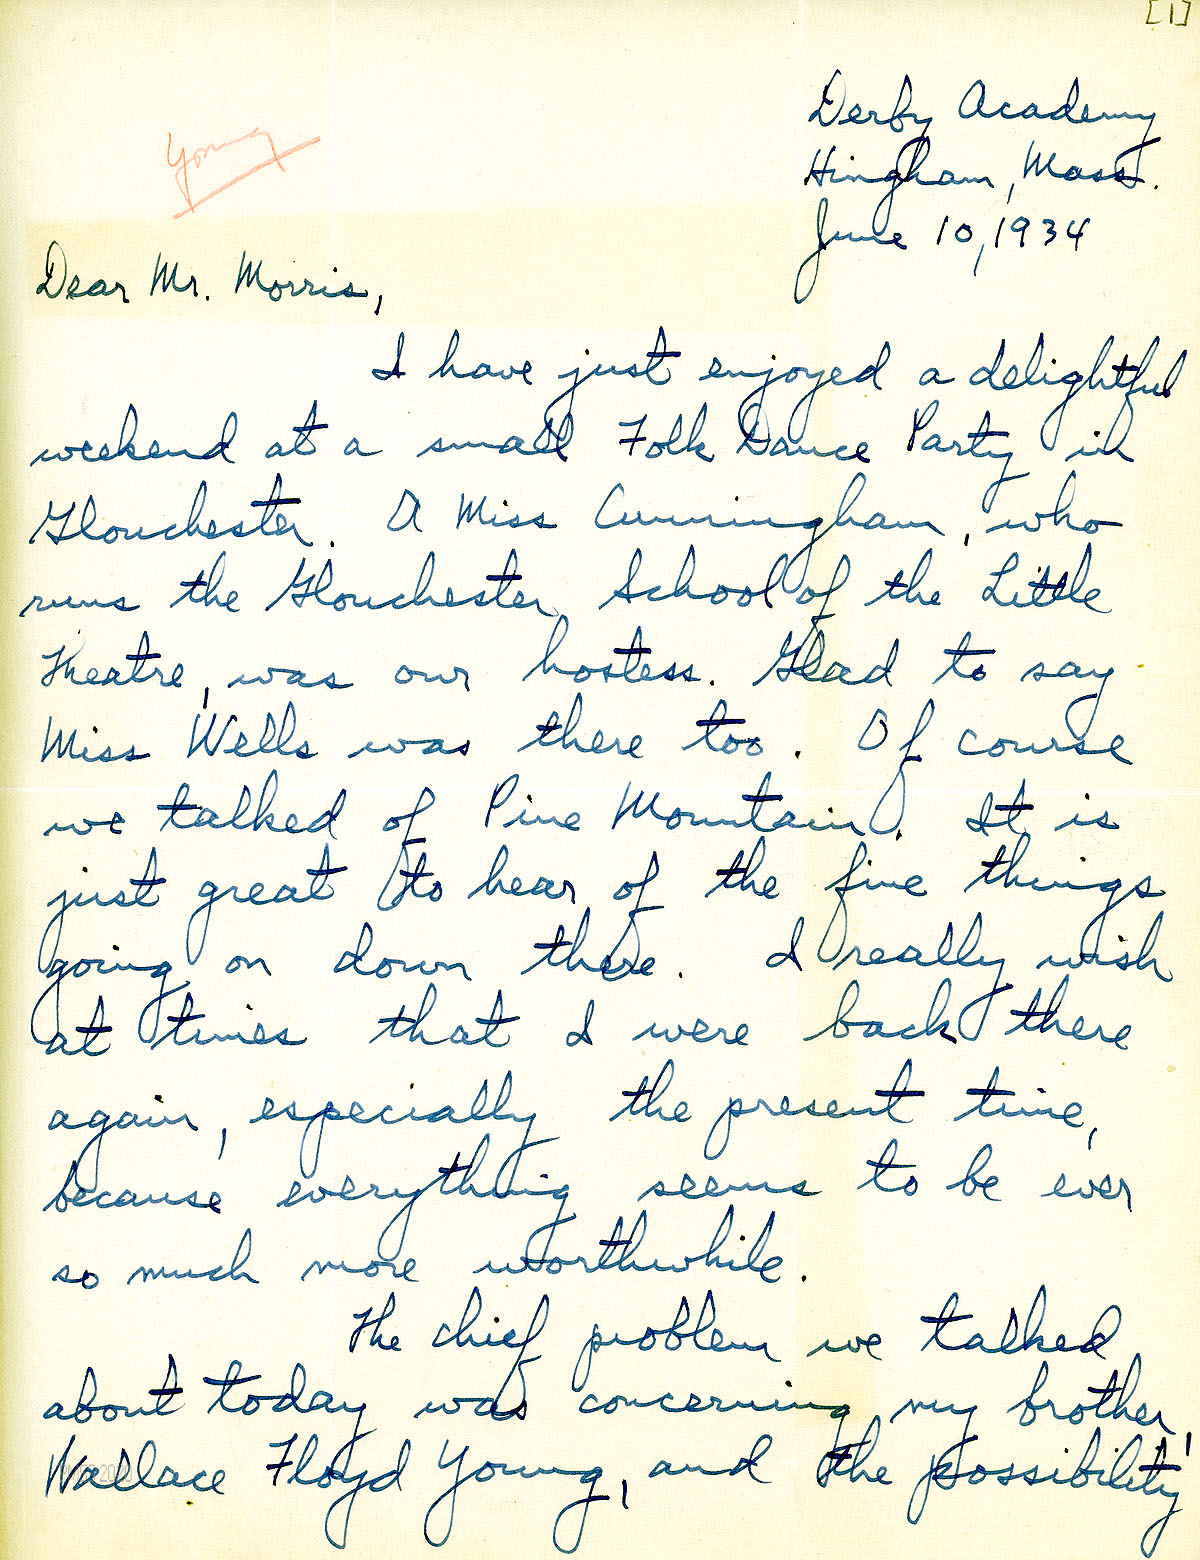 [1]
Derby Academy
Hingham, Mass.
June 10, 1934
Young
Dear Mr. Morris,
I have just enjoyed a delightful
weekend at a small Folk Dance Party in
Glouchester. A Miss Cunningham, who
runs the Glouchester School of the Little
Theatre, was our hostess. Glad to say
Miss Wells was there too. Of course
we talked of Pine Mountain. It is
just great to hear of the fine things
going on down there. I really wish
at times that I were back there
again, especially the present time,
because everything seems to be ever
so much more worthwhile.
The chief problem we talked
about today was concerning my brother,
Wallace Floyd Young, and the possibility